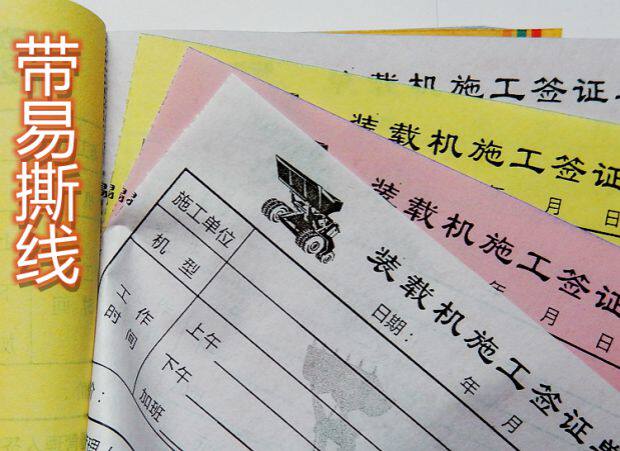 带易撕线
装载机施工签证单
装载机施工签证
年 月 日
装载机施工签证
年 月 日
装载机施工签证单
日期： 年 月
施工单位
机型
工作时间
上午
下午
加班